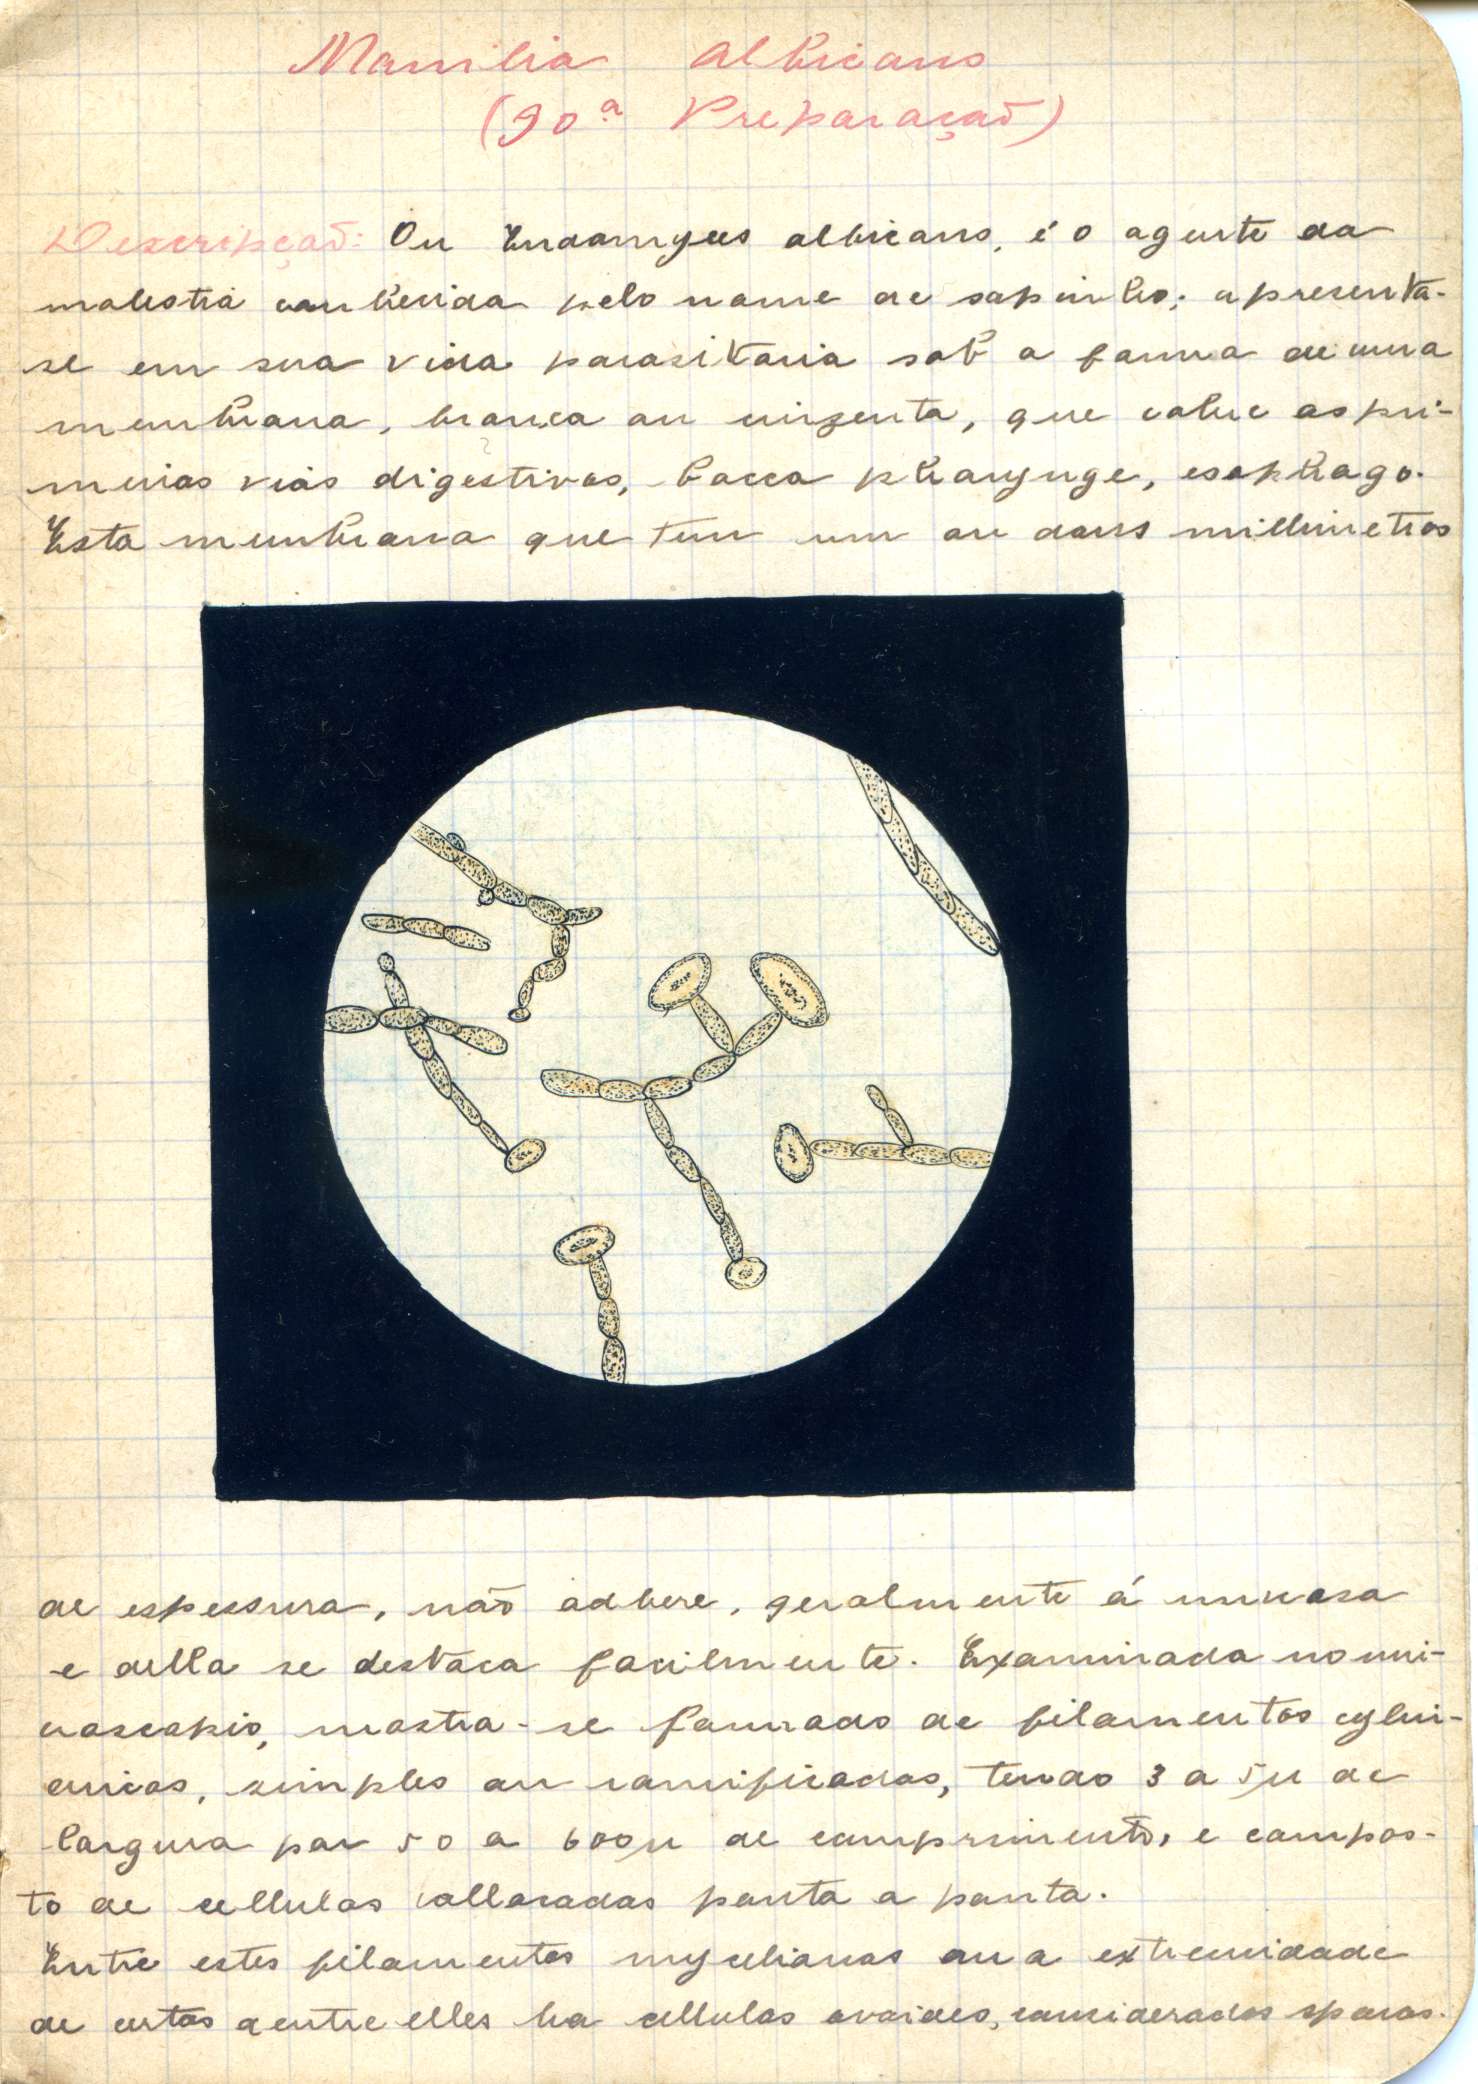 Monilia albicans
(90ª Preparação)
Descripção: Ou Endomyces albicans, é o agente da
molestia conhecida pelo nome de sapinho; apresenta-
se em sua vida parasitaria sob a forma de uma
membrana, branca ou cinzenta, que cobre as pri-
meiras vias digestivas, bocca pharynge, esophago.
Esta membrana que tem um ou dous millimetros
de espessura, não adhere, geralmente á mucosa
e della se destaca facilmente. Examinada no mi-
croscopio, mostra-se formado de filamentos cylin-
dricos, simples ou ramificados, tendo 3 a 5µ de
largura por 50 a 600µ de comprimento, e compos-
to de cellulas collocadas ponta a ponta.
Entre estes filamentos mycelianos ou a extremidade
de certos dentre elles ha cellulas ovoides, consideradas sporos.